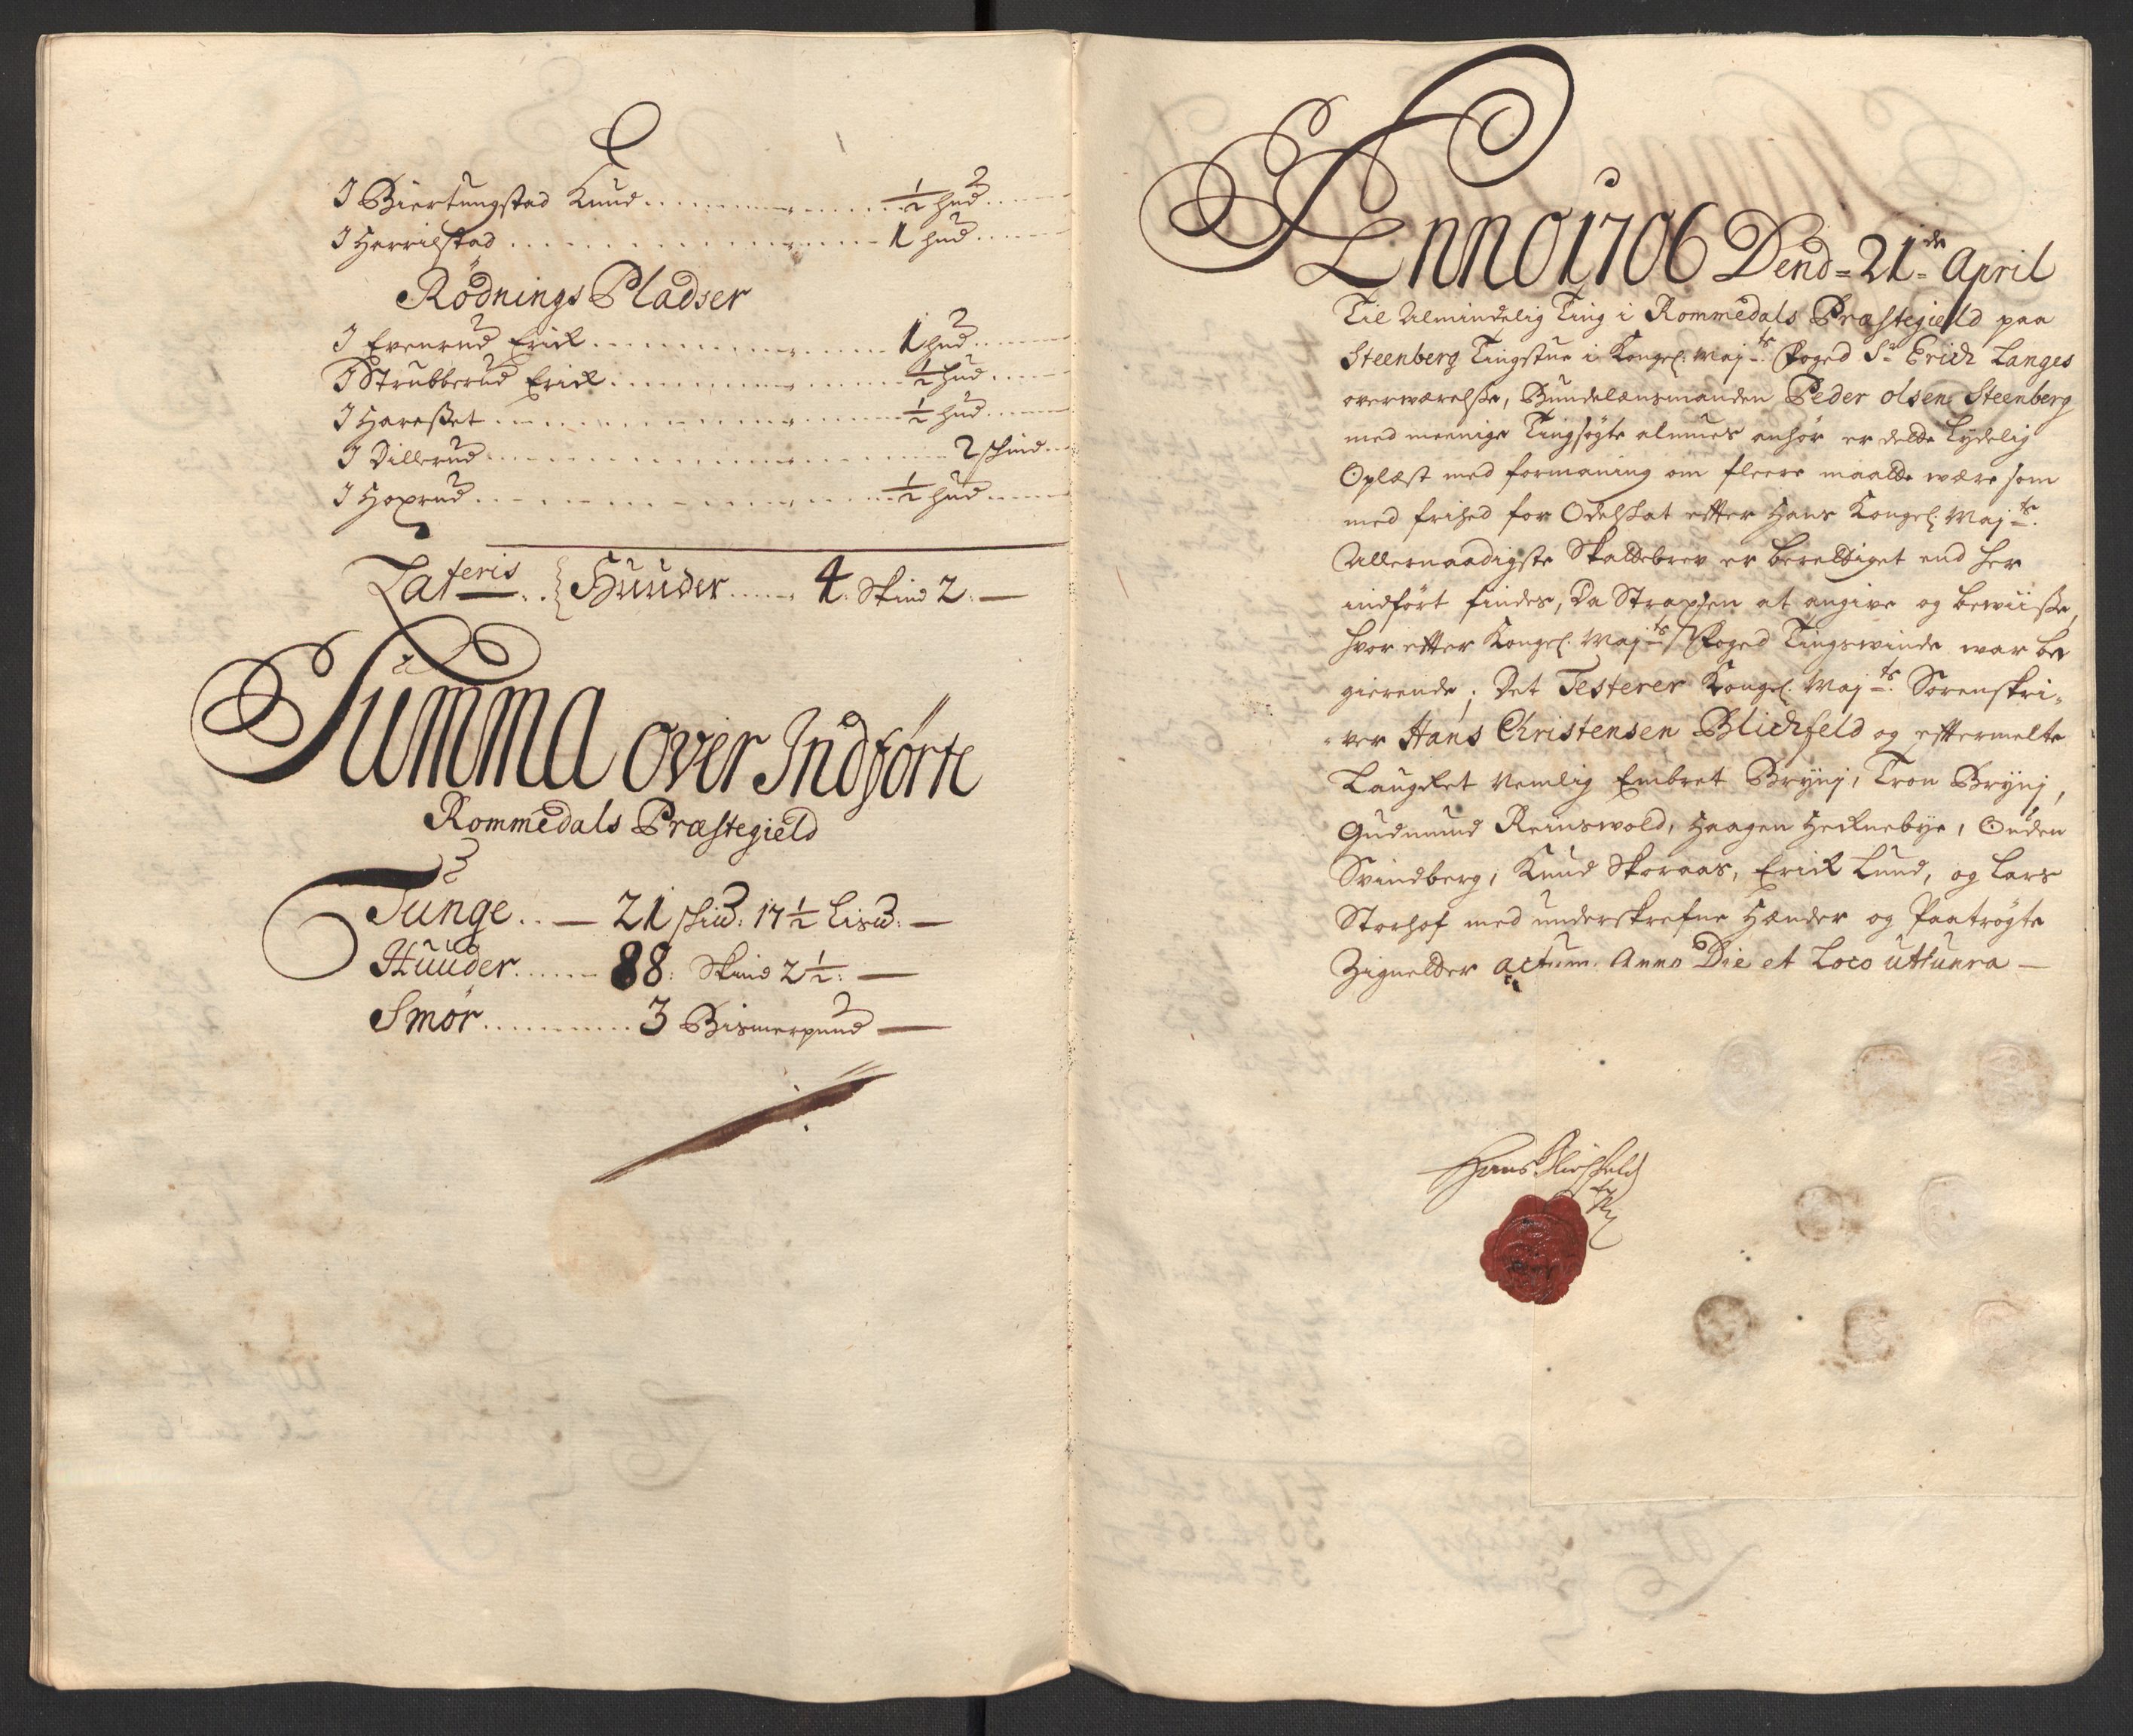 I Biertungstad Knud ½ hud
I Herrilstad 1 hud
Rödnings Pladser
I Evenrud Erick 1 hud
I Strubberud Erick ½ hud
I Haresset ½ hud
I Dillerud 2 skind
I Hoxrud ½ hud
Lateris Huuder 4. Skind 2.
Summa over Indførte
Rommedals Præstegield
Tunge 21 skud: 17½ Lisd:
Huuder 88: Skind 2½:
Smör 3 Bismerpund
Anno 1706 Dend 21de April
Til Almindelig Ting i Rommedals Præstegield paa
Steenberg Tingstue i Kongl: Maj:ts Foged Sr Erich Langes
overværelsse, Bundelænsmanden Peder olsen Steenberg
med meenige Tingsøgte almues anhør er dette Lydelig
Oplæst med formaning om fleere maatte være som
med frihed for Odelskat efter Hans Kongel: Maj:ts
Allernaadigste Skattebrev er berettiget end her
indført findes, Da Straxsen at angive og beviisse,
hvor efter Kongel: Maj:ts Foged Tingsvinde war be
gierende; Det Testerer Kongel: Maj:ts Sorenskri-
ver Hans Christensen Blichfeld og eftermelte
Laugret Nemlig Embret Brynj, Tron Brynj,
Gudmund Reinswold, Haagen Hecknebye, Ouden
Svindberg, Knud Skoraas, Erick Lund, og Lars
Storhof med underskrefne Hænder og Paatrøgte
Zignetter actum Anno Die et Loco ut supra
Hans Blichfeld